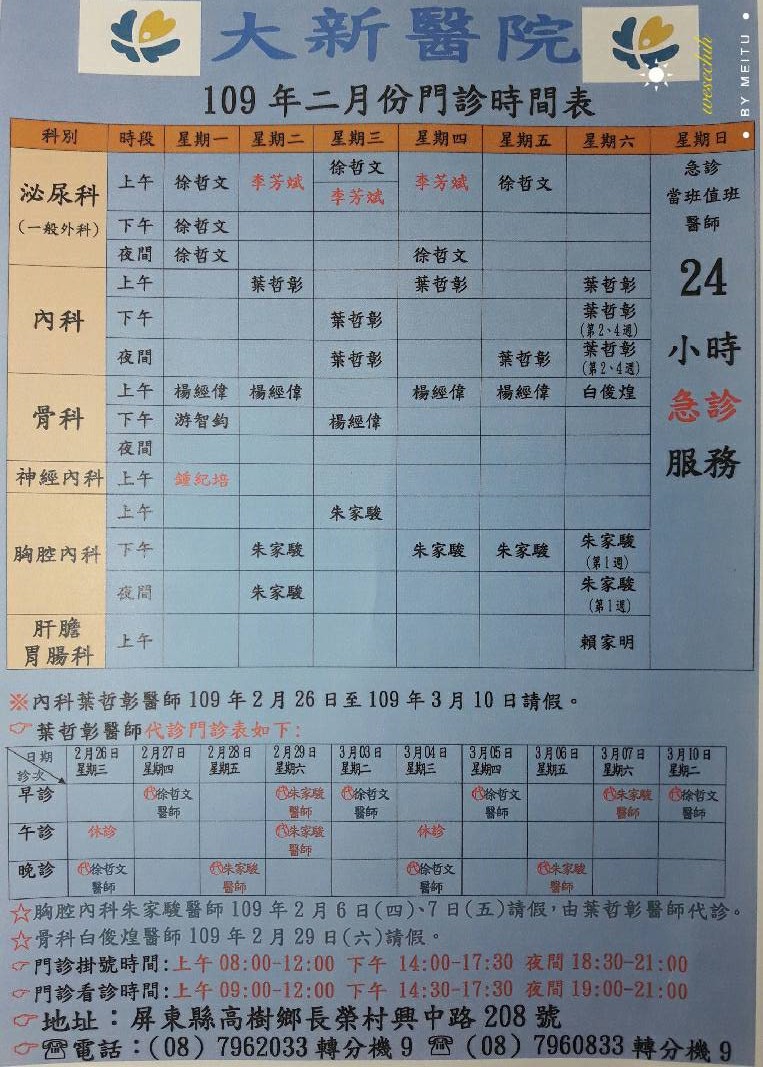 大新醫院
wesechih
BY MEITU
109 年二月份門診時間表
科別 時段 星期一 星期二 星期三 星期四 星期五 星期六 星期日
泌尿科 (一般外科) 上午 徐哲文 李芳斌 徐哲文 李芳斌 李芳斌 徐哲文
下午 徐哲文
夜間 徐哲文 徐哲文
內科 上午 葉哲彰 葉哲彰 葉哲彰
下午 葉哲彰 葉哲彰 (第2、4週)
夜間 葉哲彰 葉哲彰 葉哲彰 (第2、4週)
骨科 上午 楊經偉 楊經偉 楊經偉 楊經偉 白俊煌
下午 游智鈞 楊經偉
夜間
神經內科 上午 鍾紀培
胸腔內科 上午 朱家駿
下午 朱家駿 朱家駿 朱家駿 朱家駿 (第1週)
夜間 朱家駿 朱家駿 (第1週)
肝膽胃腸科 上午 賴家明
急診
當班值班
醫師
24
小時
急診
服務
※內科葉哲彰醫師 109 年 2 月 26 日至 109 年 3 月 10 日請假。
☞葉哲彰醫師代診門診表如下:
日期 診次 2月26日 星期三 2月27日 星期四 2月28日 星期五 2月29日 星期六 3月03日 星期二 3月04日 星期三 3月05日 星期四 3月06日 星期五 3月07日 星期六 3月10日 星期二
早診 代徐哲文醫師 代朱家駿醫師 代徐哲文醫師 代徐哲文醫師 代朱家駿醫師 代徐哲文醫師
午診 休診 代朱家駿醫師 休診
晚診 代徐哲文醫師 代朱家駿醫師 代徐哲文醫師 代朱家駿醫師
☆胸腔內科朱家駿醫師 109 年 2 月 6 日(四)、7 日(五)請假,由葉哲彰醫師代診。
☆骨科白俊煌醫師 109 年 2 月 29 日(六)請假。
☞門診掛號時間:上午 08:00-12:00 下午 14:00-17:30 夜間 18:30-21:00
☞門診看診時間:上午 09:00-12:00 下午 14:30-17:30 夜間 19:00-21:00
☞地址:屏東縣高樹鄉長榮村興中路 208 號
☞☎電話:(08) 7962033 轉分機 9 ☎ (08) 7960833 轉分機 9